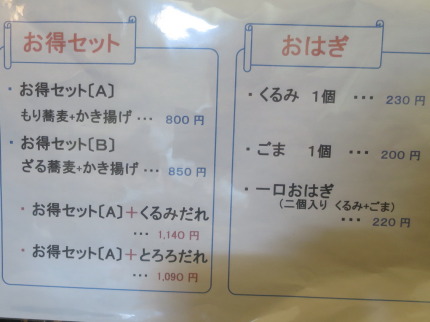 お得セット
・お得セット〔A〕
もり蕎麦+かき揚げ ・・・ 800 円
・お得セット〔B〕
ざる蕎麦+かき揚げ ・・・ 850 円
・お得セット〔A〕+くるみだれ
・・・ 1,140 円
・お得セット〔A〕+とろろだれ
・・・ 1,090 円
おはぎ
・くるみ 1個 ・・・ 230 円
・ごま 1個 ・・・ 200 円
・一口おはぎ
(二個入り くるみ+ごま)
・・・ 220 円